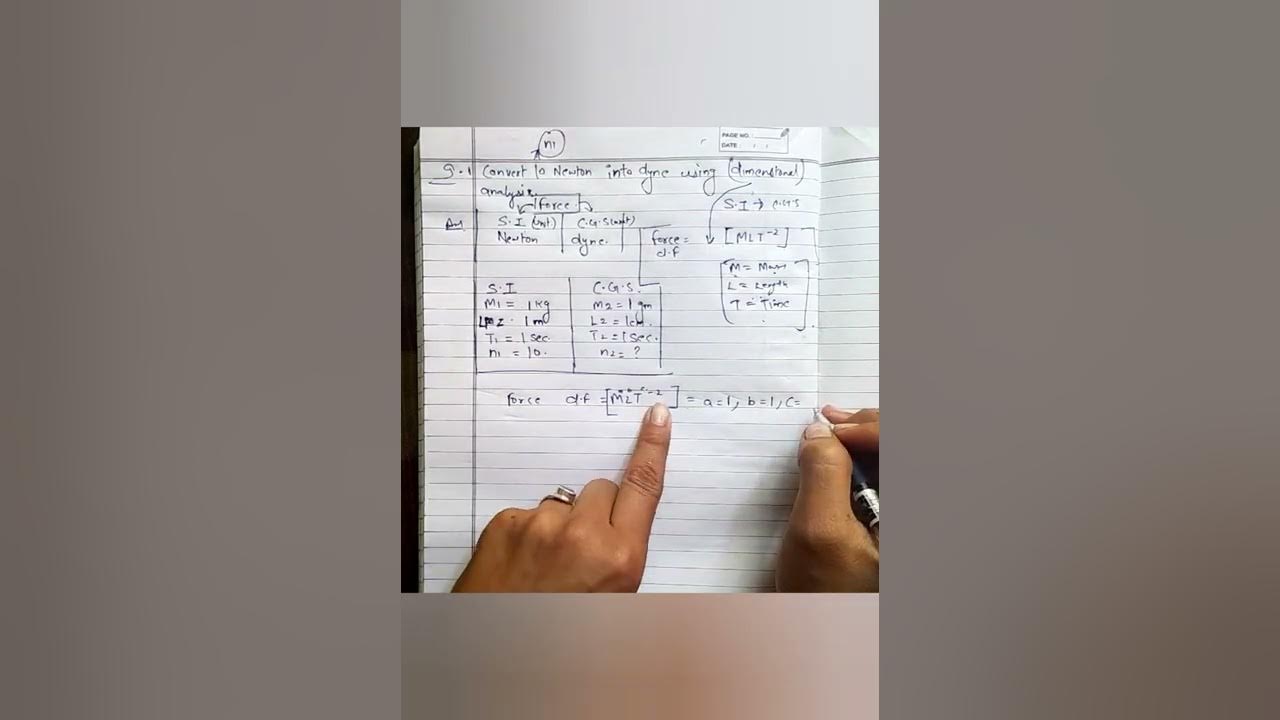 n1
PAGE NO.:
DATE: / /
Q.1 Convert 10 Newton into dyne using (dimensional)
analysis.
force
S.I → C.G.S
Ans S.I (unit) C.G.S (unit)
Newton dyne.
force =
d.f
[MLT⁻²]
M = Mass
L = Length
T = Time
S.I C.G.S.
M1 = 1 kg M2 = 1 gm
1m L2 = 1cm.
T1 = 1 sec. T2 = 1 sec.
n1 = 10. n2 = ?
Force d.f = [MLT⁻²] = a=1, b=1, c=